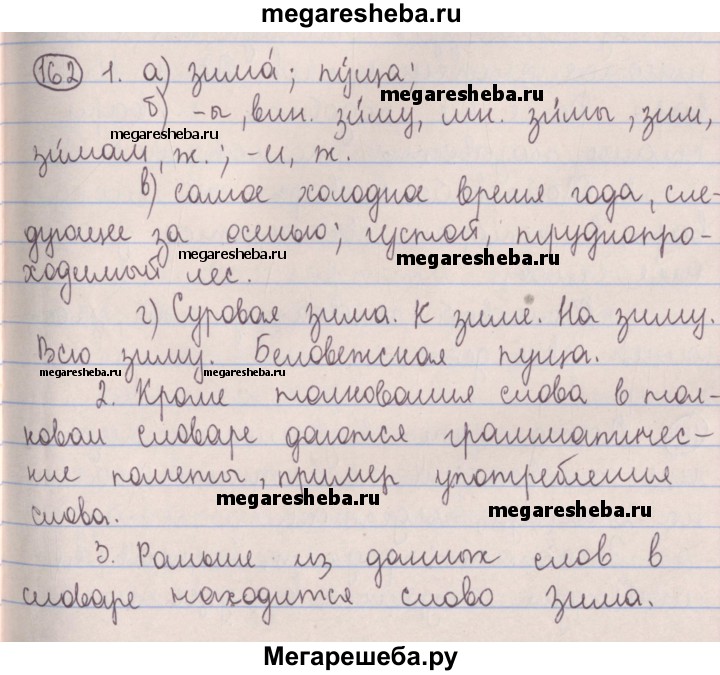 megaresheba.ru
162 1. а) зима́; пу́ща;
megaresheba.ru
б) -ы, вин. зи́му, мн. зи́мы, зим,
megaresheba.ru
зи́мам, ж.; -и, ж.
в) самое холодное время года, сле-
дующее за осенью; густой, труднопро-
megaresheba.ru
megaresheba.ru
ходимый лес.
г) Суровая зима. К зиме. На зиму.
Всю зиму. Беловежская пуща.
megaresheba.ru
megaresheba.ru
2. Кроме толкования слова в тол-
ковом словаре даются грамматичес-
кие пометы, пример употребления
megaresheba.ru
megaresheba.ru
слова.
3. Раньше из данных слов в
словаре находится слово зима.
Мегарешеба.ру